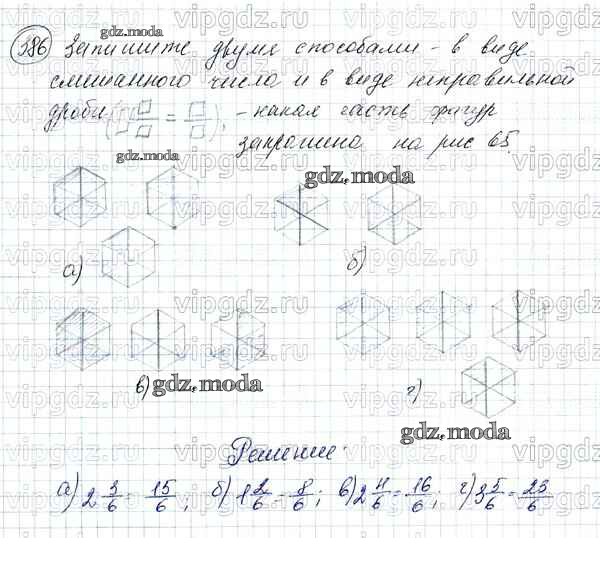 386 Запишите двумя способами - в виде
смешанного числа и в виде неправильной
дроби (□ □/□ = □/□), - какая часть фигур
закрашена на рис 65.
gdz.moda
gdz.moda
gdz.moda
а)
б)
в) gdz.moda
г)
gdz.moda
Решение.
а) 2 3/6 = 15/6; б) 1 2/6 = 8/6; в) 2 4/6 = 16/6; г) 3 5/6 = 23/6
vipgdz.ru